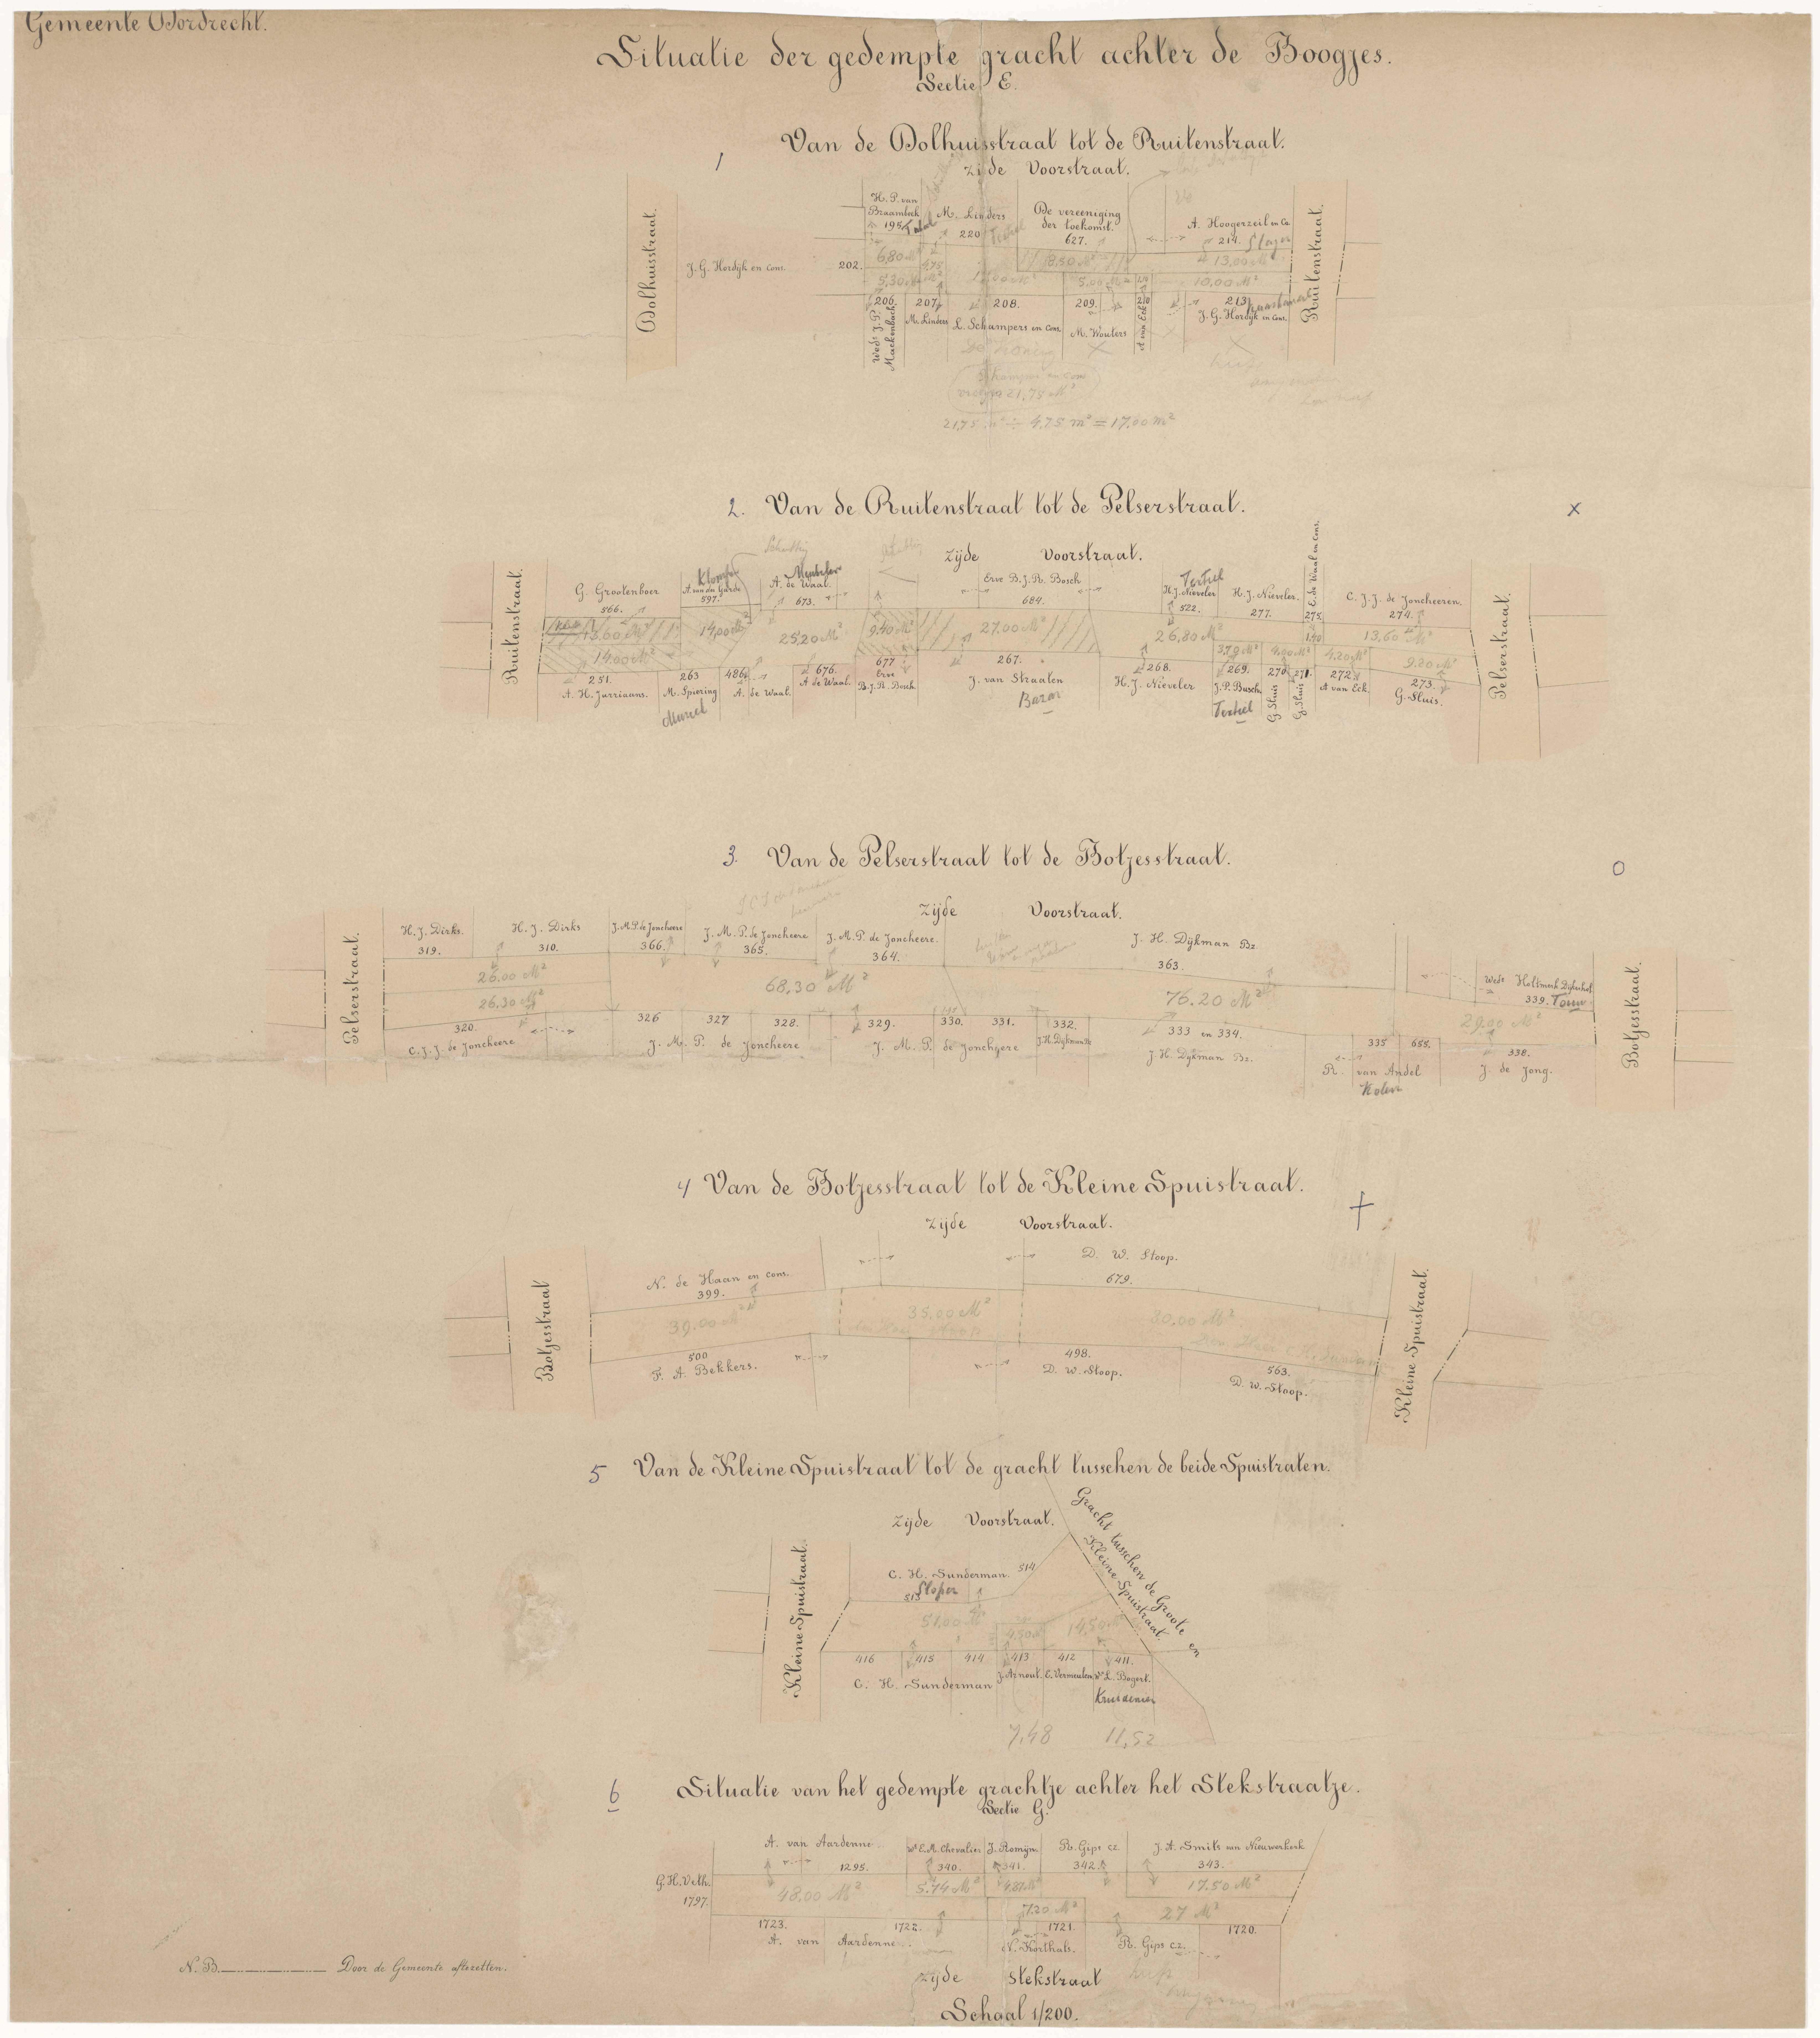 Gemeente Dordrecht.
Situatie der gedempte gracht achter de Boogjes.
Sectie E.
1
Van de Dolhuisstraat tot de Ruitenstraat.
zijde Voorstraat.
Dolhuisstraat.
J. G. Hordijk en Cons.
202.
H. P. van
Braambeek
195
M. Linders
220
De vereeniging
der toekomst.
627.
A. Hoogerzeil en Co.
214.
Ruitenstraat.
6,80 M²
18,50 M²
13,00 M²
5,30 M²
4,75
5,00 M²
10,00 M²
206.
Wed. J. P.
Mackenbach
207.
M. Linders
208.
L. Schampers en Cons.
209.
M. Wouters
210
A van Eck
213
J. G. Hordijk en Cons.
Schampers en Cons
21,75 M²
21,75 m² ÷ 4,75 m² = 17,00 m²
2. Van de Ruitenstraat tot de Pelserstraat.
x
zijde Voorstraat.
Ruitenstraat.
G. Grootenboer
566.
A. van der Garde
597.
A. de Waal.
673.
Erve B. J. R. Bosch
684.
Textiel
H. J. Nieveler
522.
H. J. Nieveler.
277.
E. de Waal en Cons.
275.
C. J. J. de Joncheeren.
274.
Pelserstraat.
13,60 M²
14,00 M²
25,20 M²
9,40 M²
27,00 M²
26,80 M²
1,40
13,60 M²
14,00 M²
3,79 M²
4,00 M²
4,20 M²
9,20 M²
251.
A. H. Jurriaans.
263
M. Spiering
486.
A. de Waal.
676.
A de Waal.
677
Erve
B. J. R. Bosch
267.
J. van Straalen
Bazar
268.
H. J. Nieveler
269.
J. P. Busch.
Textiel
270
G. Sluis
271.
G. Sluis
272
A van Eck.
273.
G. Sluis.
3. Van de Pelserstraat tot de Botjesstraat.
O
zijde Voorstraat.
Pelserstraat.
H. J. Dirks.
319.
H. J. Dirks
310.
J. M. P. de Joncheere
366.
J. M. P. de Joncheere
365.
J. M. P. de Joncheere.
364.
J. H. Dijkman Bz.
363.
339.
Botjesstraat.
26,00 M²
26,30 M²
68,30 M²
76,20 M²
29,00 M²
320.
C. J. J. de Joncheere
326
327
328.
J. M. P. de Joncheere
329.
330.
331.
J. M. P. de Joncheere
332.
J. H. Dijkman Bz
333 en 334.
J. H. Dijkman Bz.
335
655.
R. van Andel
Kolen
338.
J. de Jong.
4 Van de Botjesstraat tot de Kleine Spuistraat.
zijde Voorstraat.
Botjesstraat
N. de Haan en cons.
399.
D. W. Stoop.
679.
Kleine Spuistraat.
39,00 M²
35,00 M²
80,00 M²
500
F. A. Bekkers.
498.
D. W. Stoop.
563.
D. W. Stoop.
5 Van de Kleine Spuistraat tot de gracht tusschen de beide Spuistraten.
zijde Voorstraat.
Gracht tusschen de Groote en
Kleine Spuistraat.
Kleine Spuistraat.
C. H. Sunderman.
514
513
Sloper
51,00 M²
4,50 M²
14,50 M²
416
415
414
C. H. Sunderman
413
J. Arnout.
412
C. Vermeulen
411.
We L. Bogert.
Kruidenier
7,48
11,52
6 Situatie van het gedempte grachtje achter het Stekstraatje.
Sectie G.
A. van Aardenne
1295.
We E. A. Chevalier
340.
J. Romijn.
341.
R. Gips Cz
342.
J. A. Smits van Nieuwerkerk
343.
G. H. Veth.
1797.
48,00 M²
5,74 M²
4,87 M²
17,50 M²
7,20 M²
27 M²
1723.
1722.
A. van Aardenne.
1721.
N. Korthals.
R. Gips Cz.
1720.
zijde Stekstraat
Schaal 1/200.
N. B. Door de Gemeente aftezetten.